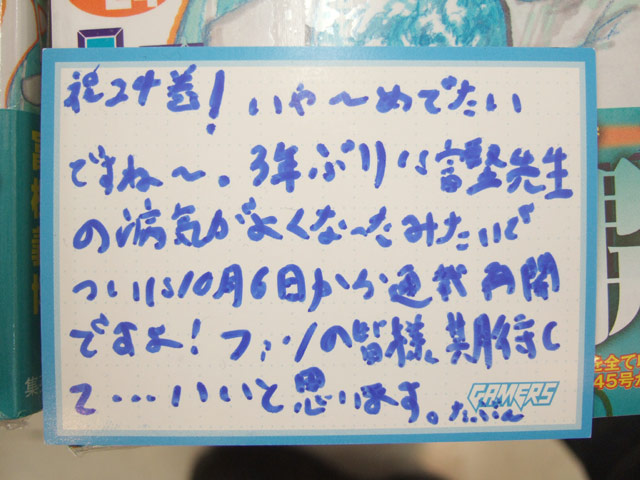 祝24巻! いや〜めでたい
ですね〜。3年ぶりに富樫先生
の病気がよくなったみたいで
ついに10月6日から連載再開
ですよ! ファンの皆様、期待し
て…いいと思います。たぶん
GAMERS
を全て
45号